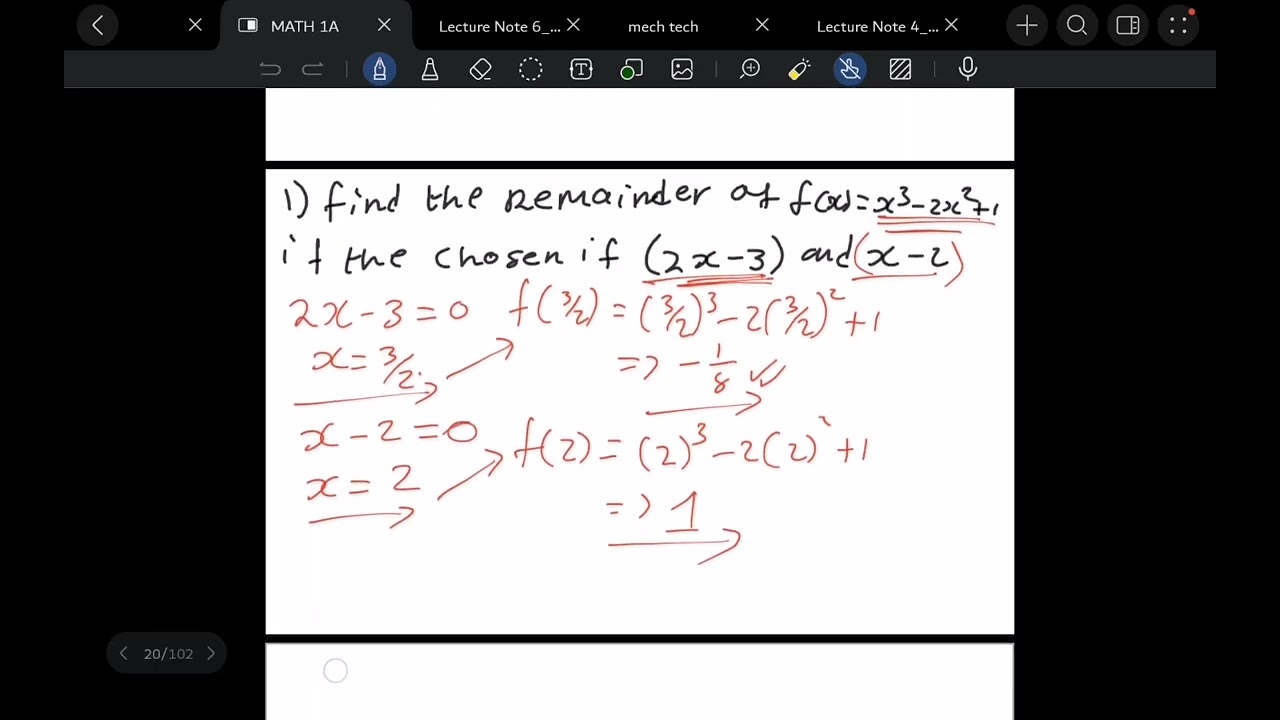 MATH 1A
Lecture Note 6_...
mech tech
Lecture Note 4_...
1) find the remainder of f(x)=x³-2x²+1
if the chosen if (2x-3) and (x-2)
2x-3=0 f(3/2) = (3/2)³-2(3/2)²+1
x=3/2 => -1/8
x-2=0 f(2) = (2)³-2(2)²+1
x=2 => 1
20/102